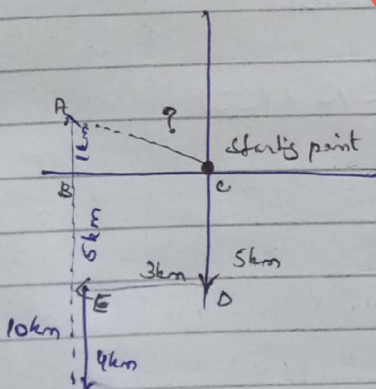 A
?
1km
Starting point
B
C
5km
3km
5km
E
D
10km
4km